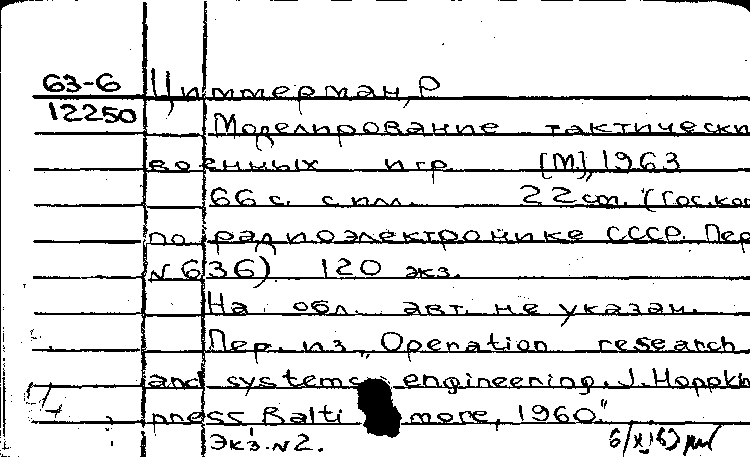 63-6
12250
Циммерман, Р
Моделирование тактически
военных игр [М], 1963
66 с. с илл. 22 cm. (Гос. ком
по радиоэлектронике СССР. Пер
N 636) 120 экз.
На обл. авт. не указан.
Пер. из „Operation research
and systems engineering. J. Hopkin
press Balti more, 1960."
Экз. N 2.